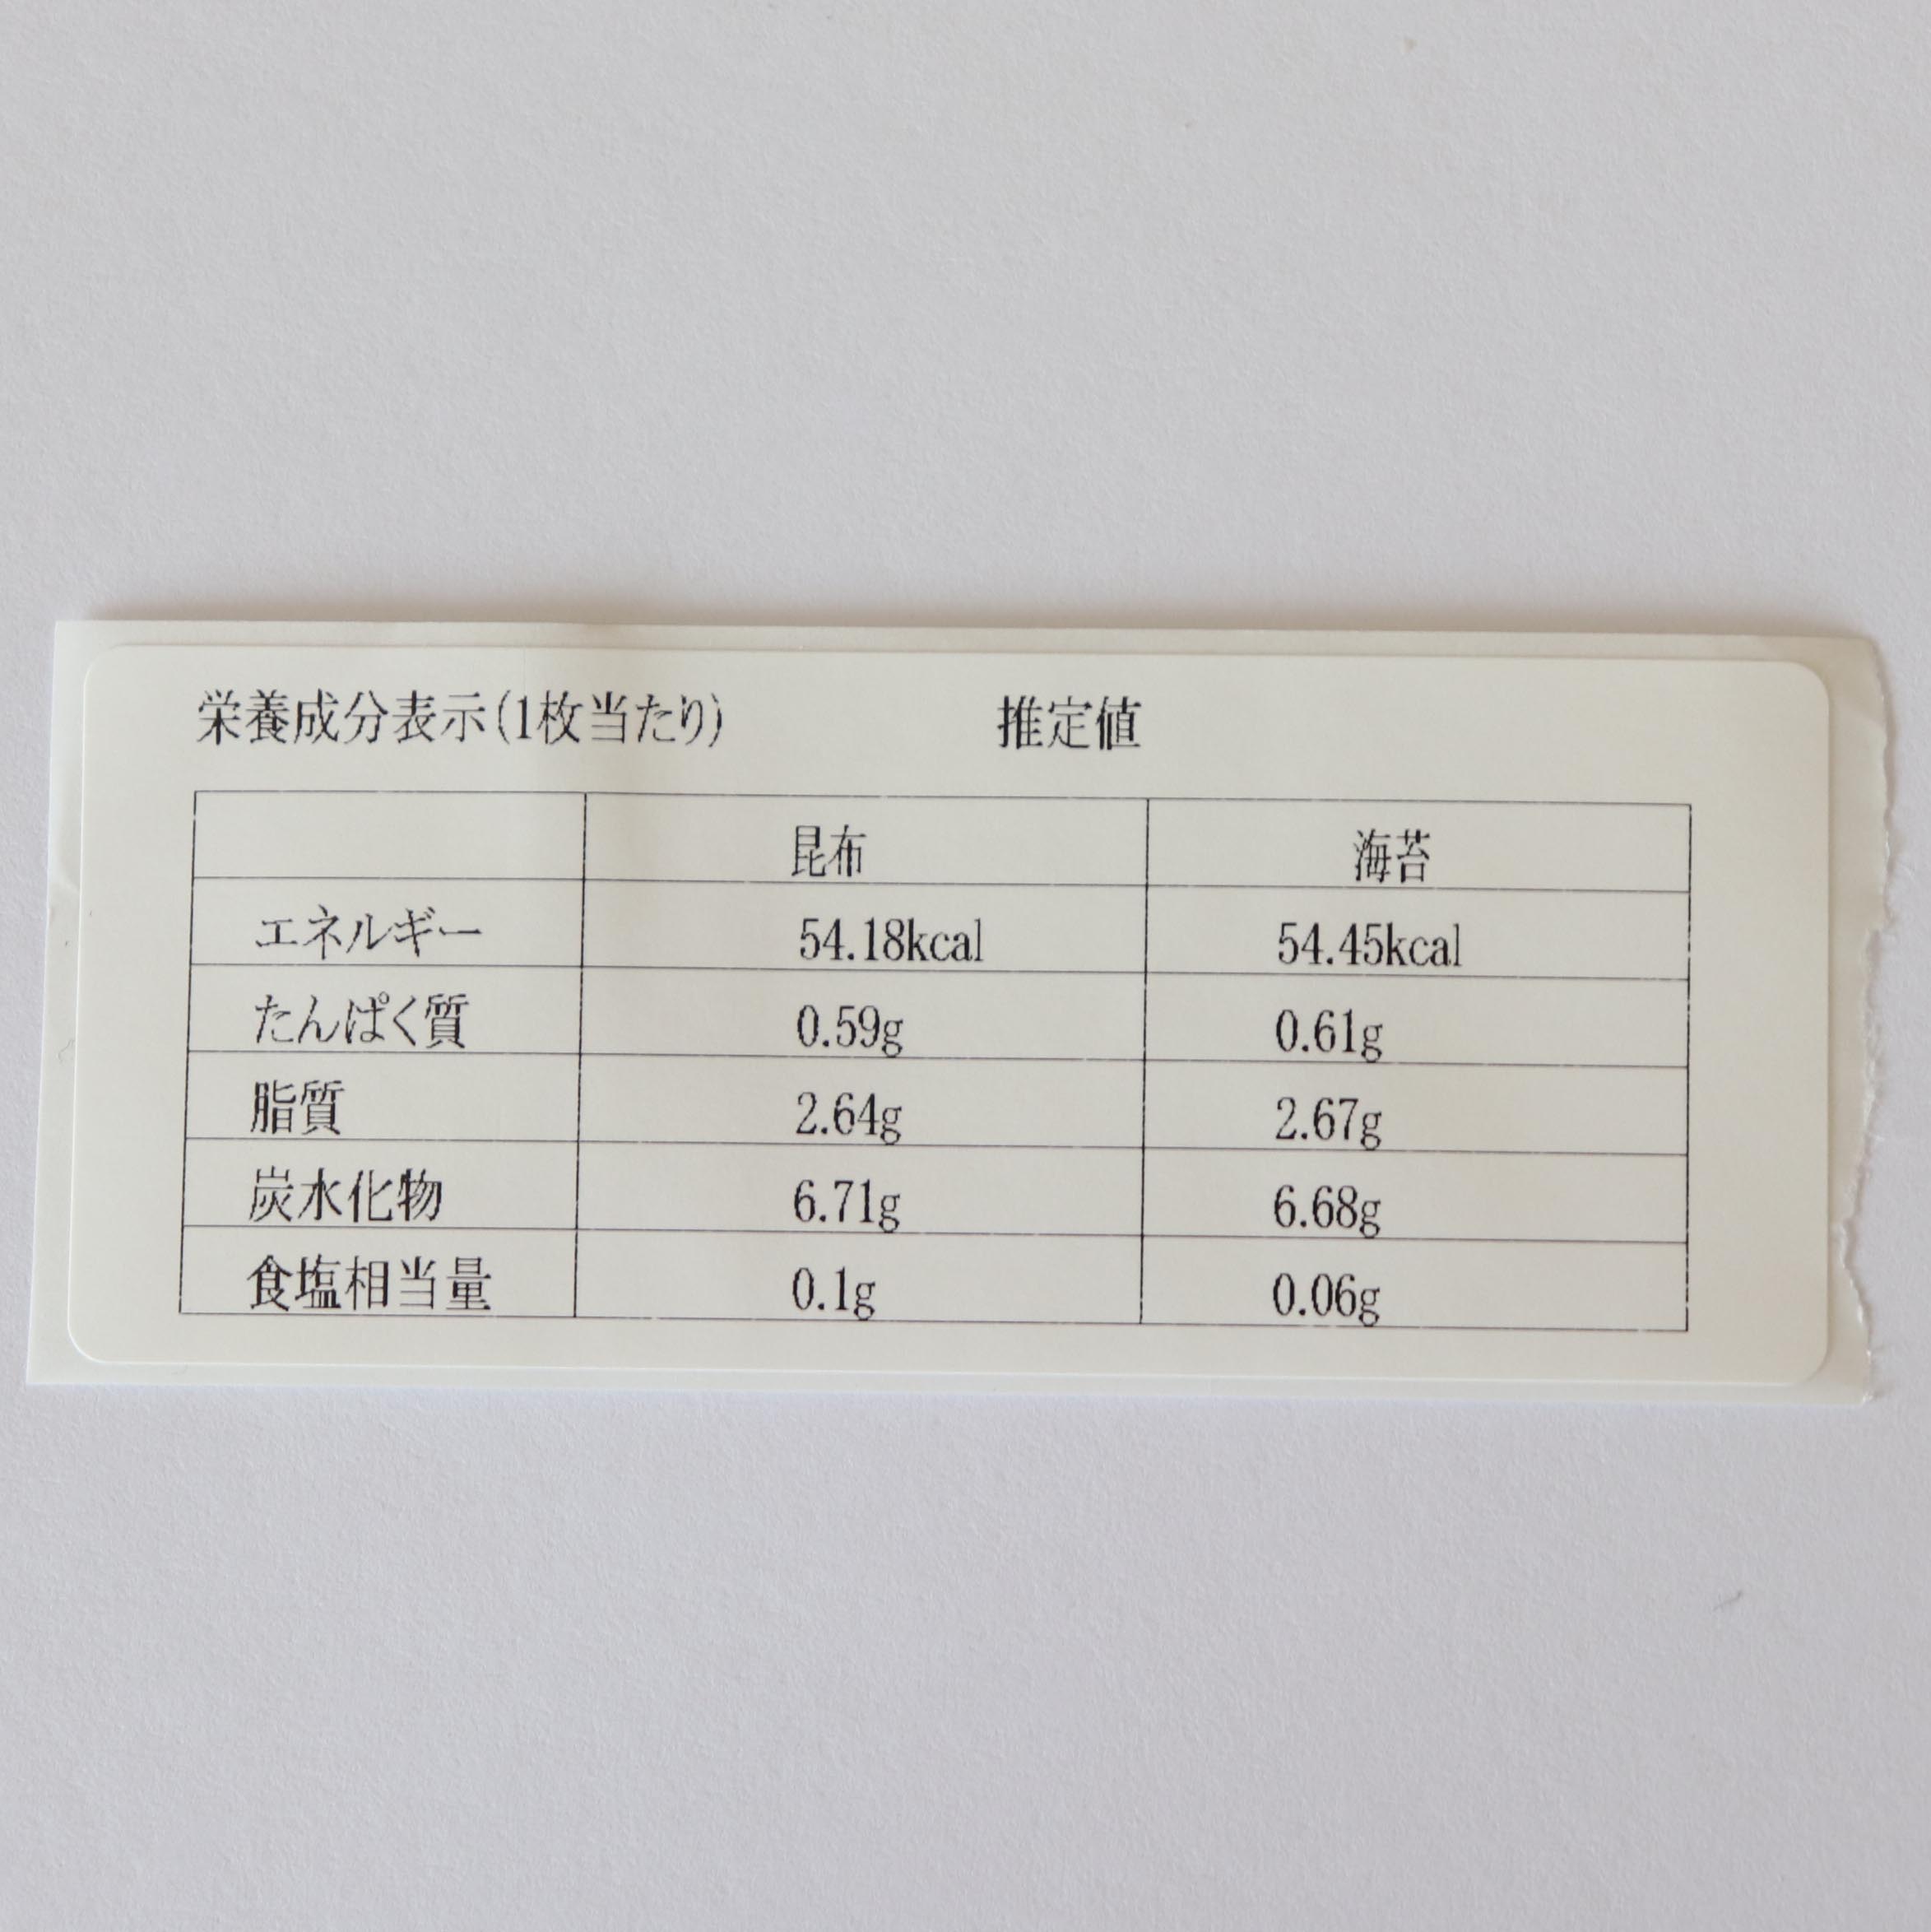 栄養成分表示(1枚当たり) 推定値
昆布 海苔
エネルギー 54.18kcal 54.45kcal
たんぱく質 0.59g 0.61g
脂質 2.64g 2.67g
炭水化物 6.71g 6.68g
食塩相当量 0.1g 0.06g